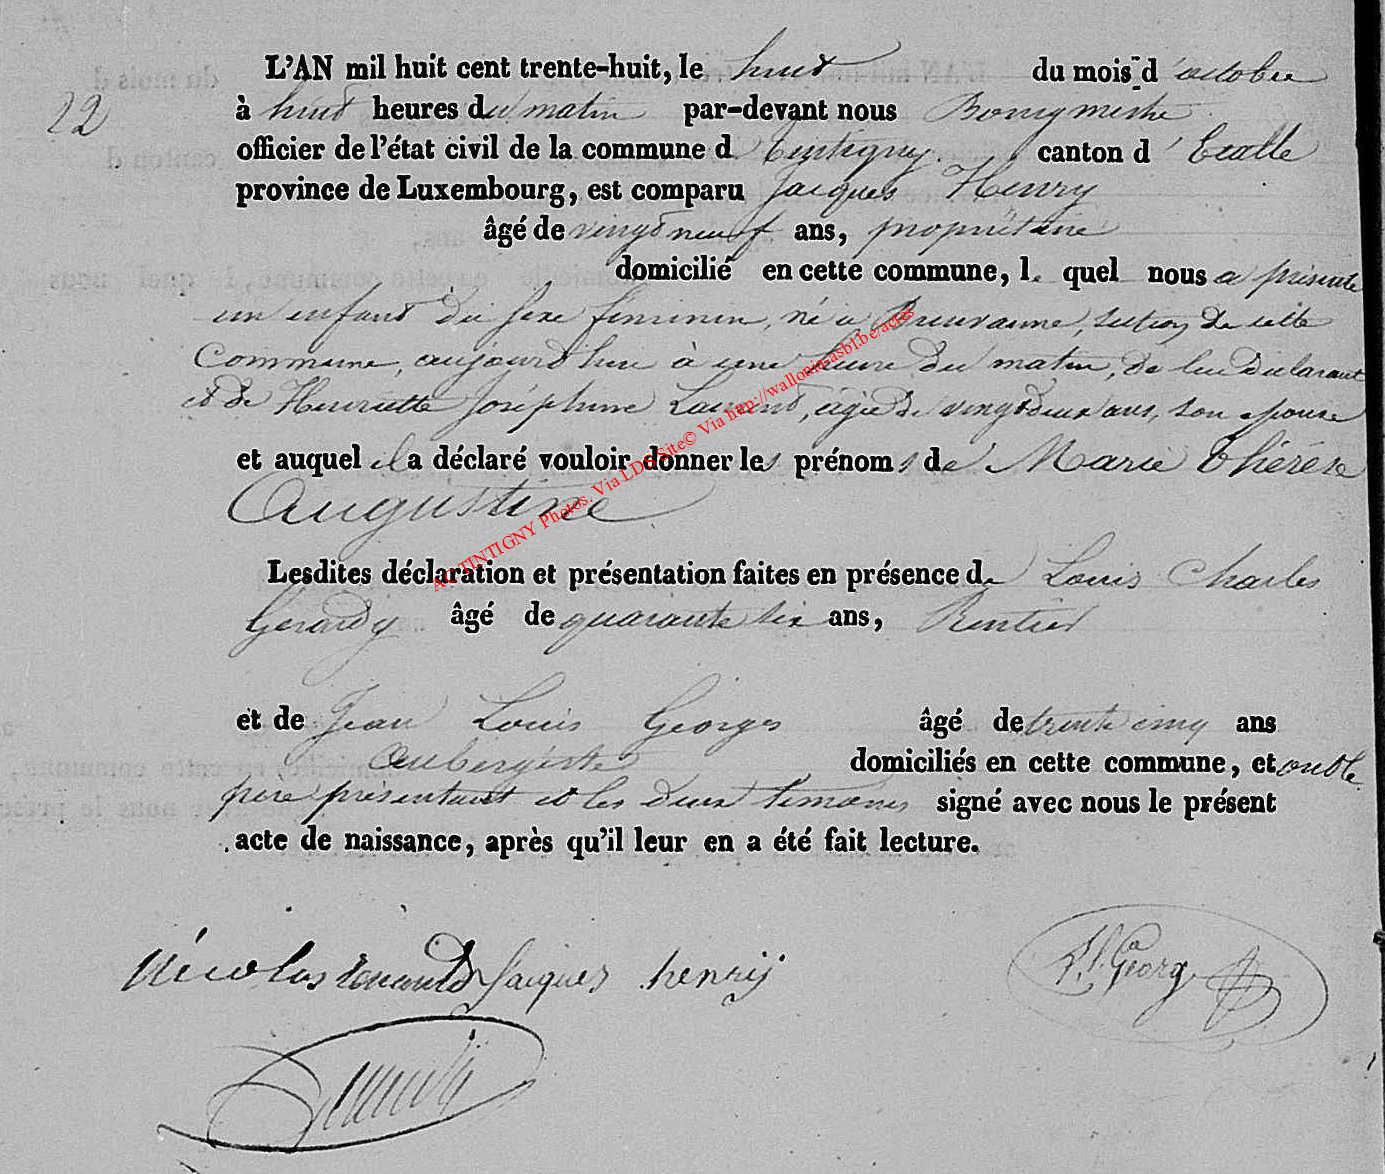 L'AN mil huit cent trente-huit, le huit du mois d'octobre
22 à huit heures du matin par-devant nous Bourgmestre
officier de l'état civil de la commune d Tintigny canton d'Etalle
province de Luxembourg, est comparu Jacques Henry
âgé de vingt neuf ans, propriétaire
domicilié en cette commune, le quel nous a présenté
un enfant du sexe féminin, né à Breuvanne, section de cette
Commune, aujourd'hui à une heure du matin, de lui déclarant
et de Henriette Joséphine Laurent, âgée de vingt deux ans, son épouse
et auquel il a déclaré vouloir donner les prénoms de Marie Thérèse
Augustine
Lesdites déclaration et présentation faites en présence de Louis Charles
Gerardy âgé de quarante six ans, Rentier
et de Jean Louis Georges âgé de trente cinq ans
aubergiste domiciliés en cette commune, et ont le
père présentant et les deux témoins signé avec nous le présent
acte de naissance, après qu'il leur en a été fait lecture.
Nicolas Jacques henrij Georg
AC TINTIGNY Photos. Via LDS Site© Via http://wallonia-asbl.be/actes